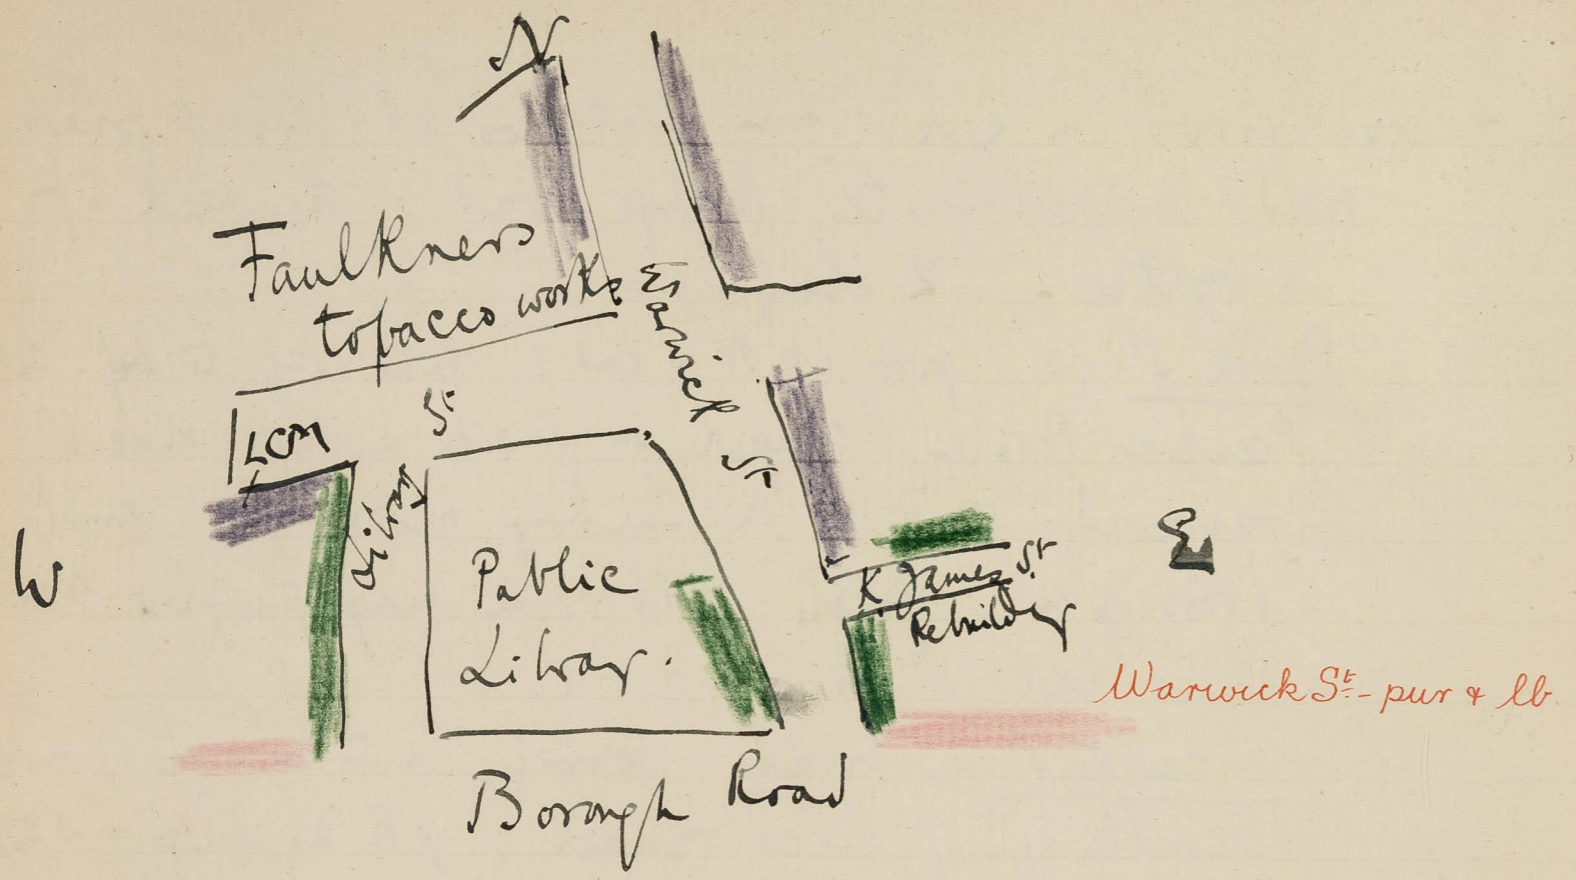 N
Faulkners
tobacco works
Warwick St
LCM
St
Library
W
Public
Library.
E
K. James St
Rebuilding
Warwick St - pur & lb
Borough Road